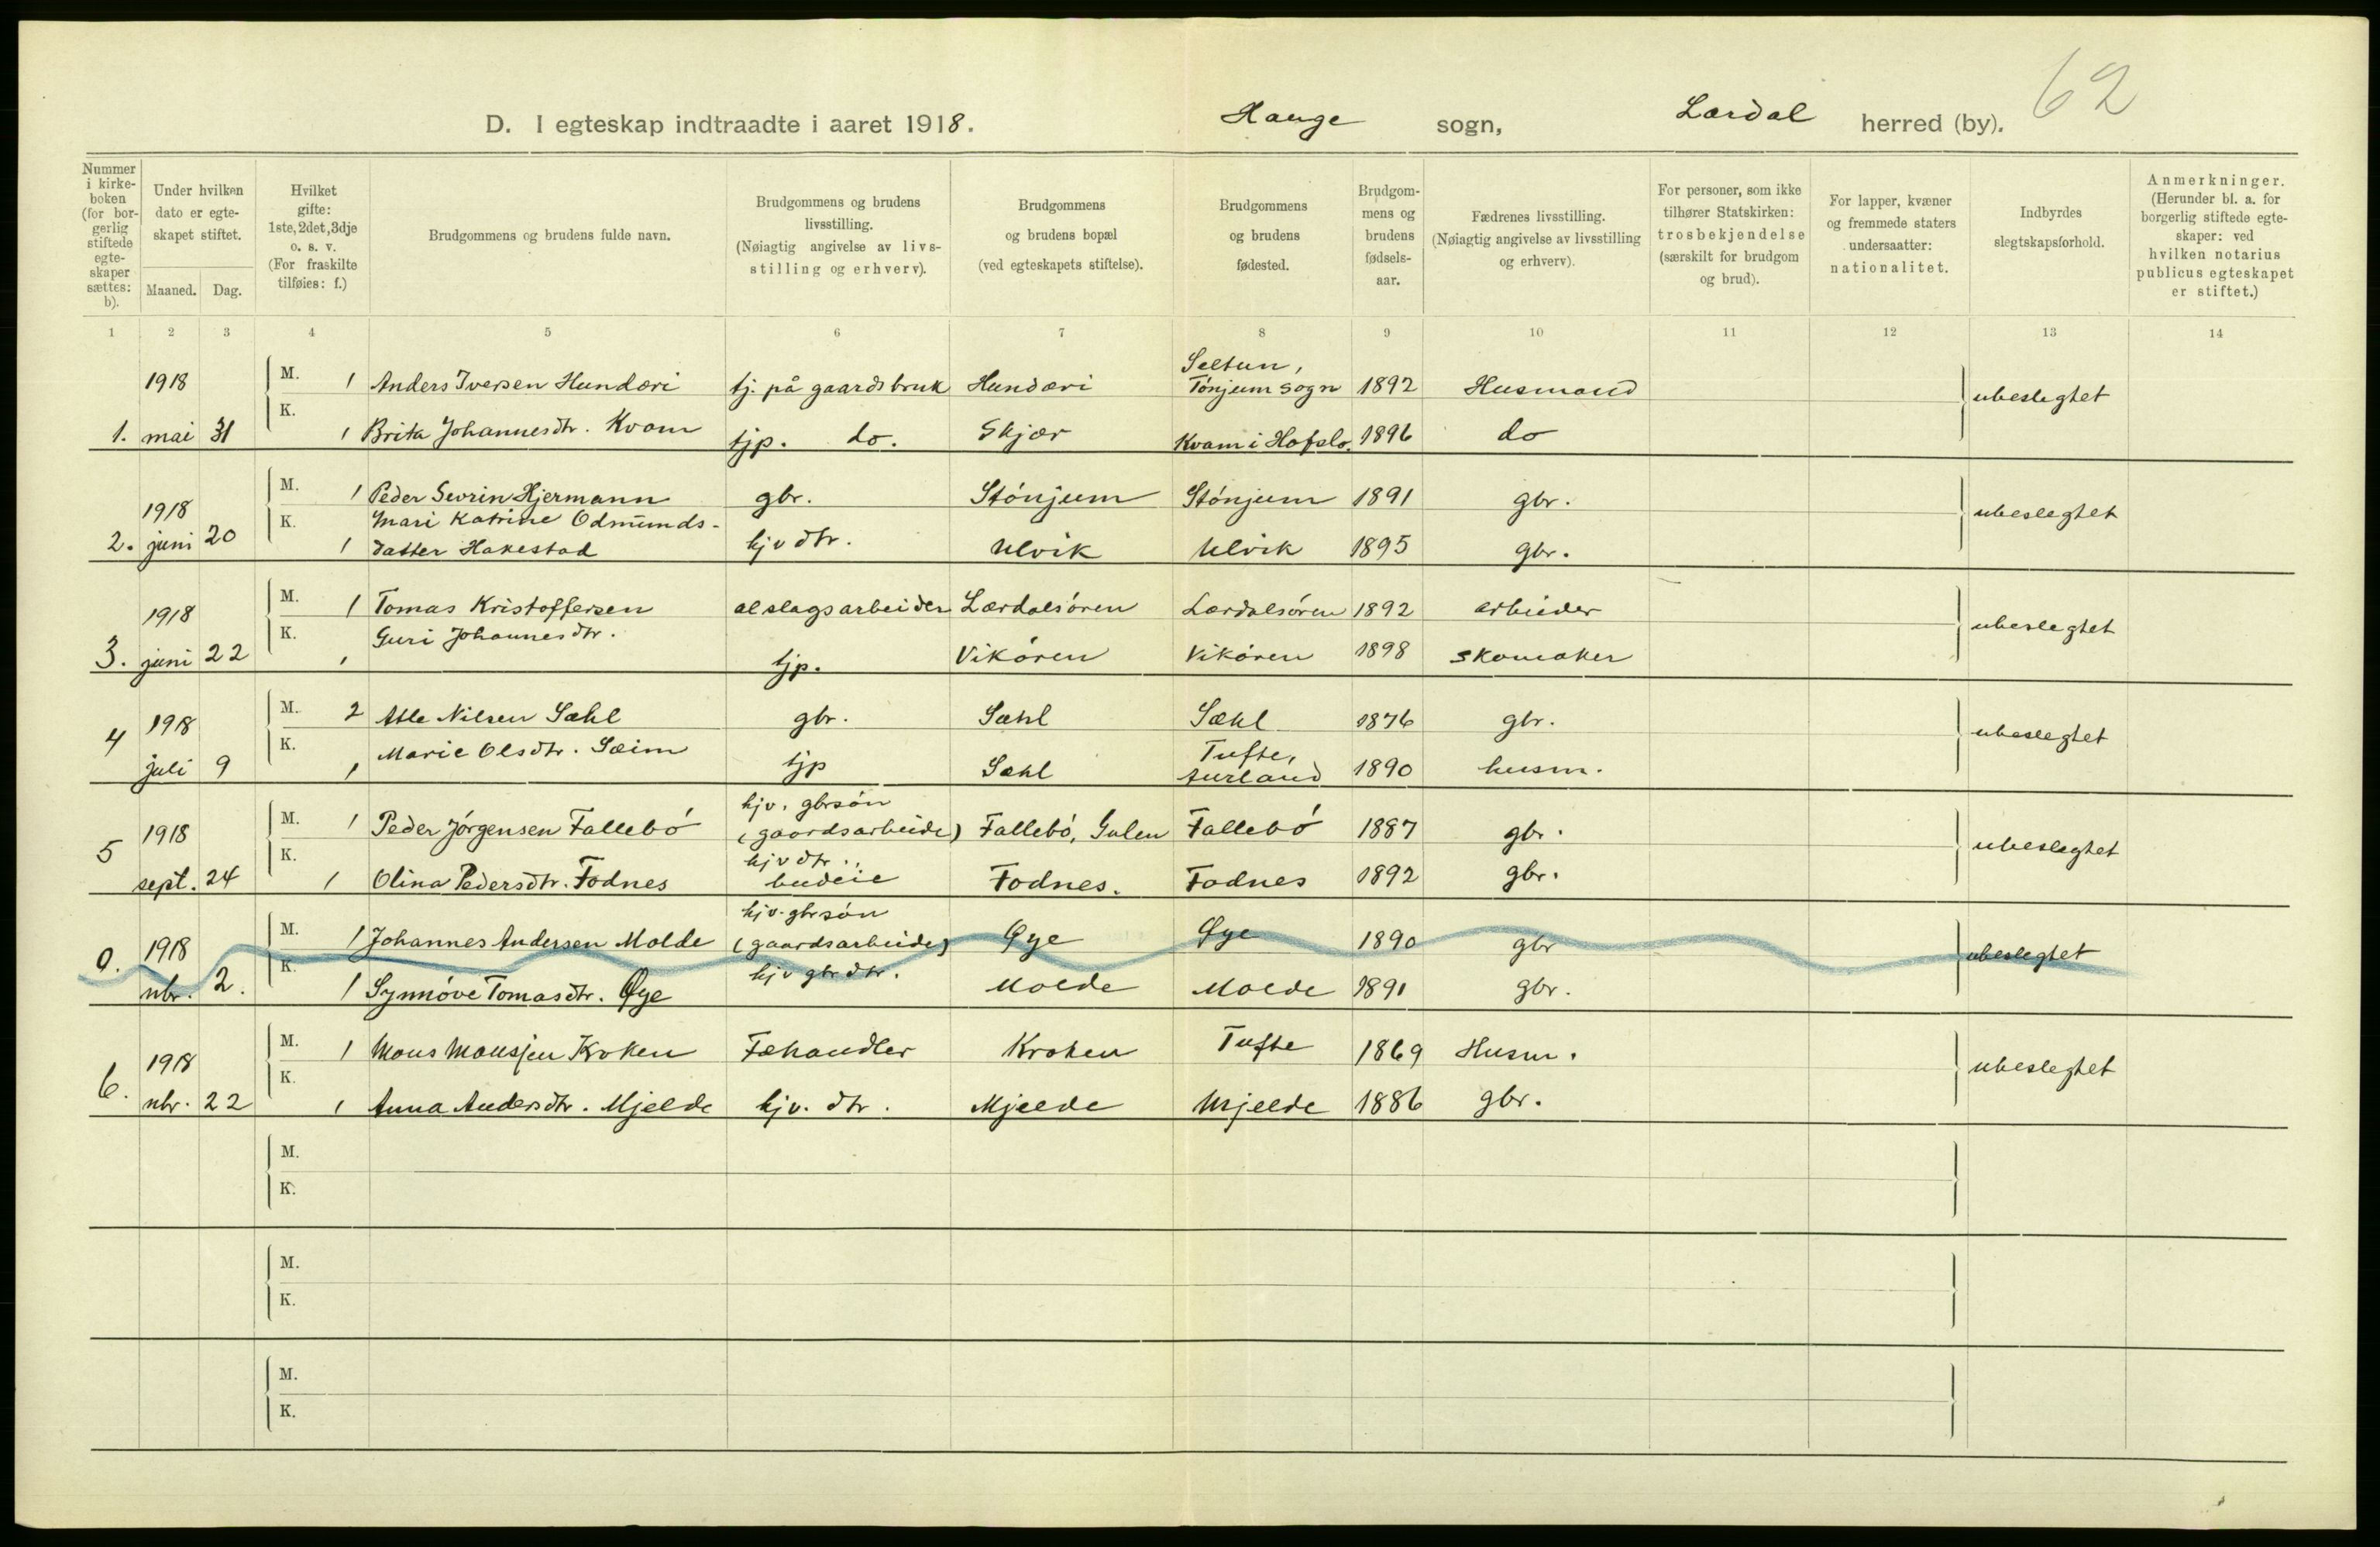 62
D. I egteskap indtraadte i aaret 1918. Hauge sogn, Lærdal herred (by).
Nummer i kirke- boken (for bor- gerlig stiftede egte- skaper sættes: b).
Under hvilken dato er egte- skapet stiftet.
Maaned. Dag.
Hvilket gifte: 1ste, 2det, 3dje o. s. v. (For fraskilte tilføies: f.)
Brudgommens og brudens fulde navn.
Brudgommens og brudens livsstilling. (Nøiagtig angivelse av livs- stilling og erhverv).
Brudgommens og brudens bopæl (ved egteskapets stiftelse).
Brudgommens og brudens fødested.
Brudgom- mens og brudens fødsels- aar.
Fædrenes livsstilling. (Nøiagtig angivelse av livsstilling og erhverv).
For personer, som ikke tilhører Statskirken: trosbekjendelse (særskilt for brudgom og brud).
For lapper, kvæner og fremmede staters undersaatter: nationalitet.
Indbyrdes slegtskapsforhold.
Anmerkninger. (Herunder bl. a. for borgerlig stiftede egte- skaper: ved hvilken notarius publicus egteskapet er stiftet.)
1 2 3 4 5 6 7 8 9 10 11 12 13 14
Seltun,
1918 M. 1 Anders Iversen Hundæri tj. på gaardsbruk Hundæri Tönjum sogn 1892 Husmand ubeslegtet
1. mai 31 K. 1 Brita Johannesdtr. Kvam tjp. do. Skjær Kvam i Hafslo. 1896 do
1918 M. 1 Peder Sevrin Hjermann gbr. Stónjum Stónjum 1891 gbr. ubeslegtet
K. Mari Katrine Odmunds-
2. juni 20 1 datter Hakestad hjv dtr. Ulvik Ulvik 1895 gbr.
1918 M. 1 Tomas Kristoffersen alslagsarbeider Lærdalsóren Lærdalsóren 1892 arbeider ubeslegtet
K. Guri Johannesdtr.
3. juni 22 1 tjp. Vikóren Vikóren 1898 skomaker
4 1918 M. 2 Atle Nilsen Sæhl gbr. Sæhl Sæhl 1876 gbr. ubeslegtet
K. Marie Olsdtr. Sæim Tufte,
juli 9 1 tjp Sæhl Aurland 1890 husm.
hjv. gbrsón
5 1918 M. 1 Peder Jórgensen Fallebó (gaardsarbeide) Fallebó, Gulen Fallebó 1887 gbr. ubeslegtet
K. hjv dtr.
sept. 24 1 Olina Pedersdtr. Fodnes budeie Fodnes. Fodnes 1892 gbr.
hjv. gbrsón
0. 1918 M. 1 Johannes Andersen Molde (gaardsarbeide) Øye Øye 1890 gbr ubeslegtet
nbr. 2. K. 1 Synnóve Tomasdtr. Øye hjv gbrdtr. Molde Molde 1891 gbr.
6. 1918 M. 1 Mons Monsen Kroken Fæhandler Kroken Tufte 1869 Husm. ubeslegtet
nbr. 22 K. 1 Anna Andersdtr. Mjelde hjv. dtr. Mjelde Mjelde 1886 gbr.
M.
K.
M.
K.
M.
K.